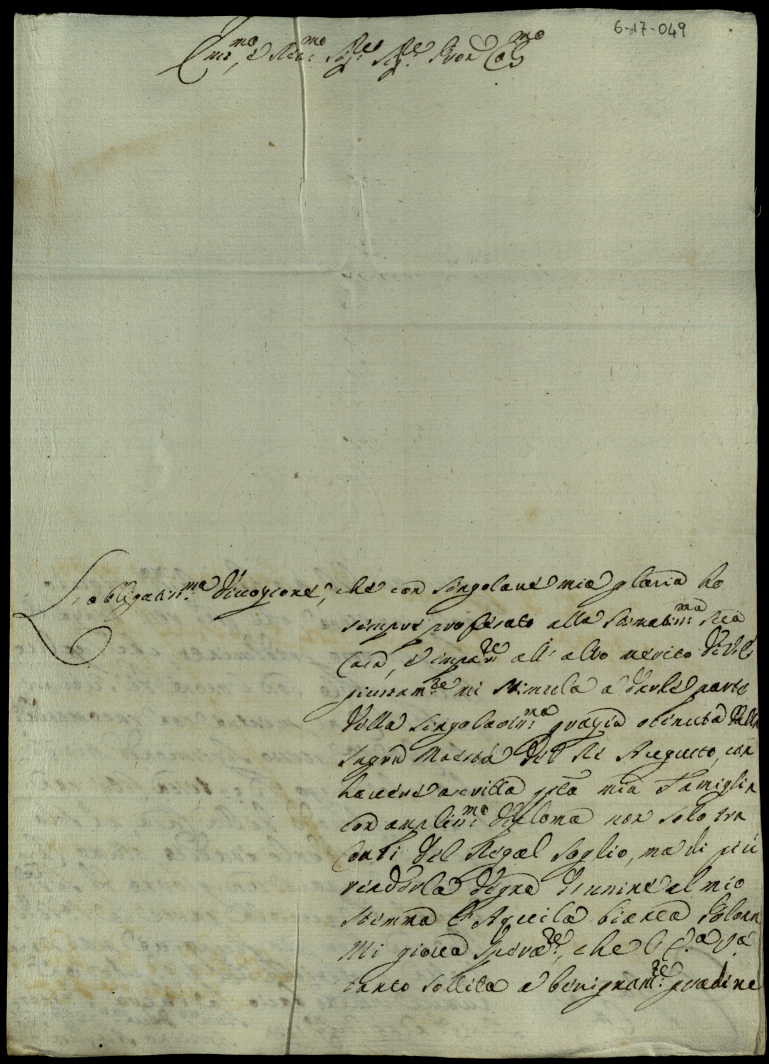 6-17-049
Emi.mo, e Rev.mo Sig.re Sig.re Pron Col.mo
L'obligatis.ma divozione, che con singolare mia gloria ho
sempre professato alla Stimatis.ma Sua
Casa, e impar.te all' alto merito di Lei
giustam.te mi stimola a darle parte
della singolariss.ma grazia ottenuta dalla
Sagra Maestà del Rè Augusto, con
havere ascritta q.sta mia Famiglia
con amplis.mo diploma non solo tra
Conti del Regal Soglio, ma di più
rendendola degna d'unire al mio
Stemma l'Aquila bianca Polona
Mi giova sperare, che
tanto sollita a benignam.te gradire